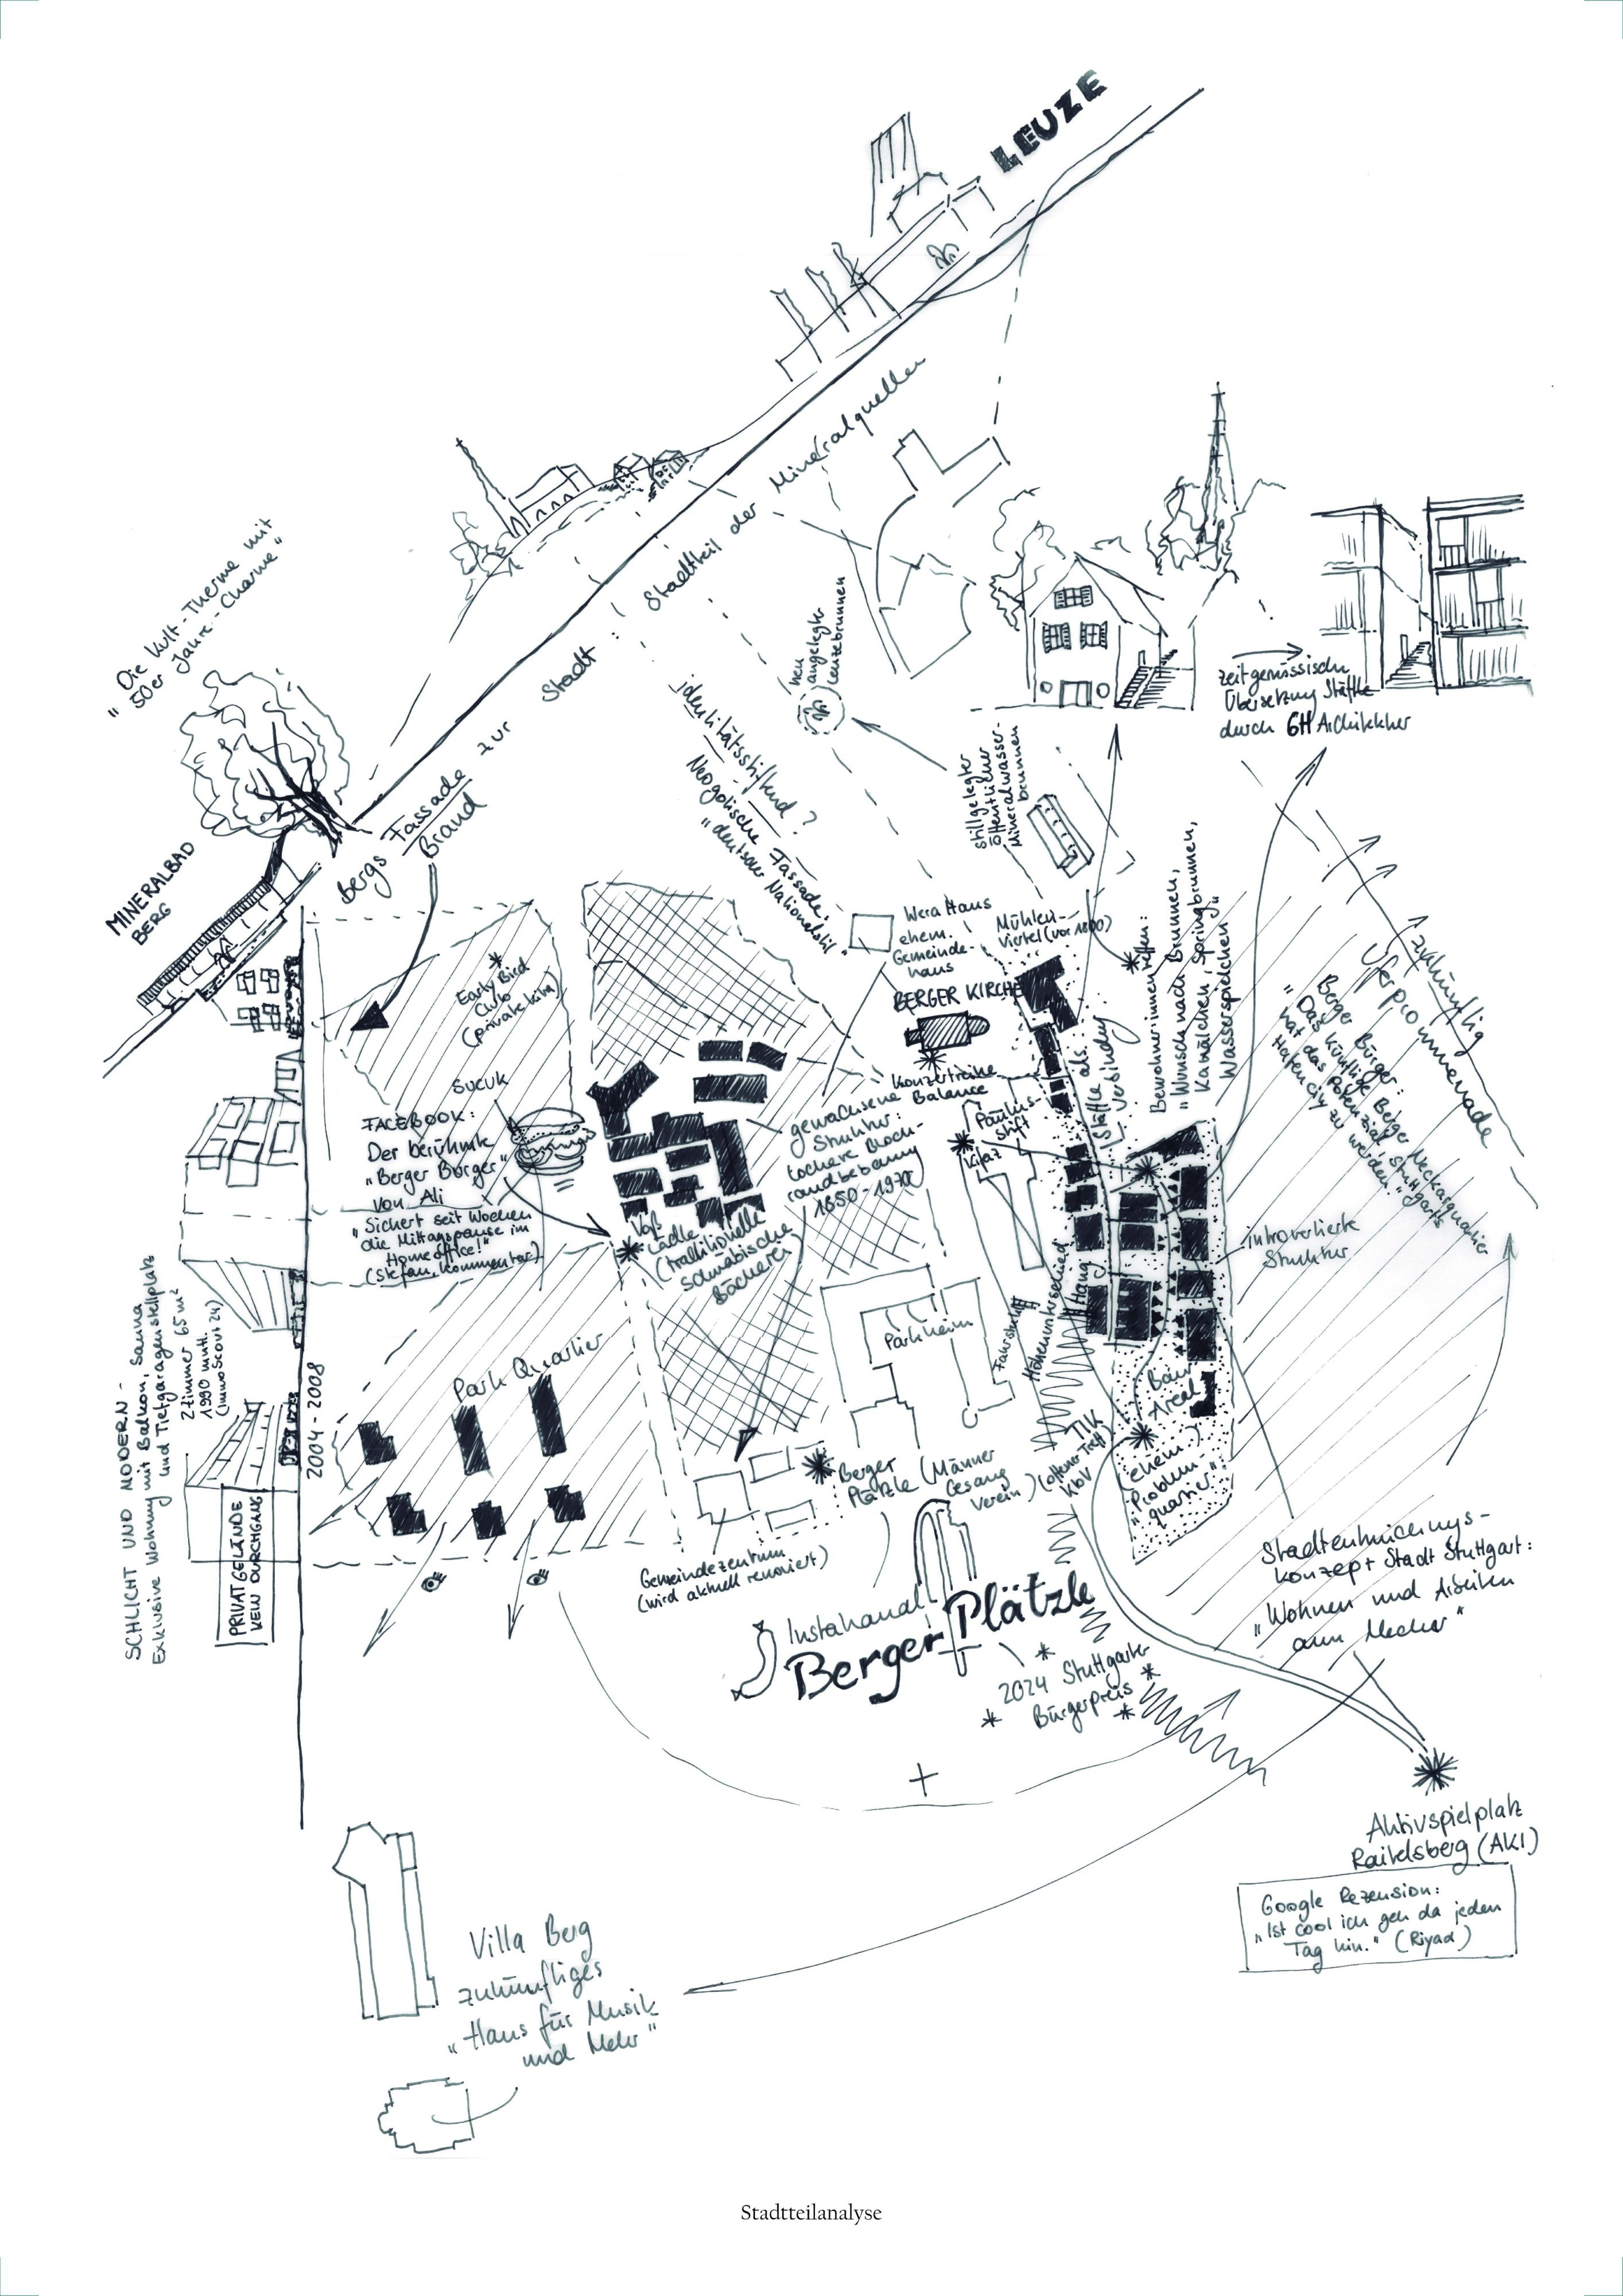 LEUZE
"Die Kult-Therme mit
50er Jahre-Charme"
MINERALBAD
BERG
Bergs Fassade zur Stadt: Stadtteil der Mineralquellen
Brand
identitätsstiftend?
Neogotische Fassade:
"deutscher Nationalstil"
neu
angelegter
Leuzebrunnen
stillgelegter
öffentlicher
Mineralwasser-
brunnen
zeitgenössische
Übersetzung Stäffele
durch GH Architekten
Wera Haus
ehem.
Gemeinde-
haus
Mühlen-
viertel (vor 1800)
BERGER KIRCHE
Konzertreihe
Balance
Stäffele als
Verbindung
Bewohnerinnen
"Wunsch nach Brunnen,
Kanälchen, Springbrunnen,
Wasserspielchen"
zukünftig
Uferpromenade
Berger Bürger:
"Das künftige Berger Neckarquartier
hat das Potenzial, Stuttgarts
Hafencity zu werden."
Early Bird
Club
(private Kita)
SUCUK
FACEBOOK:
Der berühmte
"Berger Burger"
von Ali
"Sichert seit Wochen
die Mittagspause im
Homeoffice!"
(Stefan, Kommentar)
gewachsene
Struktur:
lockere Block-
randbebauung
1850-1970
Paulus-
stift
Kitaz
Lädle
(traditionelle
schwäbische
Bäckerei)
introvertierte
Struktur
Parkheim
Fahrstuhl
Höhenunterschied
Hang
Park Quartier
2004-2008
SCHLICHT UND MODERN -
Exklusive Wohnung mit Balkon, Sauna
und Tiefgaragenstellplatz
2 Zimmer 65 m²
1990 mntl.
(ImmoScout 24)
PRIVATGELÄNDE
KEIN DURCHGANG
Berger
Plätzle (Männer
Gesang
Verein)
(offener Treff)
Areal
(ehem.
"Problem-
quartier")
Gemeindezentrum
(wird aktuell renoviert)
Instakanal
Berger Plätzle
2024 Stuttgarter
Bürgerpreis
Stadtentwicklungs-
konzept Stadt Stuttgart:
"Wohnen und Arbeiten
am Neckar"
Aktivspielplatz
Raitelsberg (AKI)
Google Rezension:
"Ist cool ich geh da jeden
Tag hin." (Riyad)
Villa Berg
zukünftiges
"Haus für Musik
und Mehr"
Stadtteilanalyse